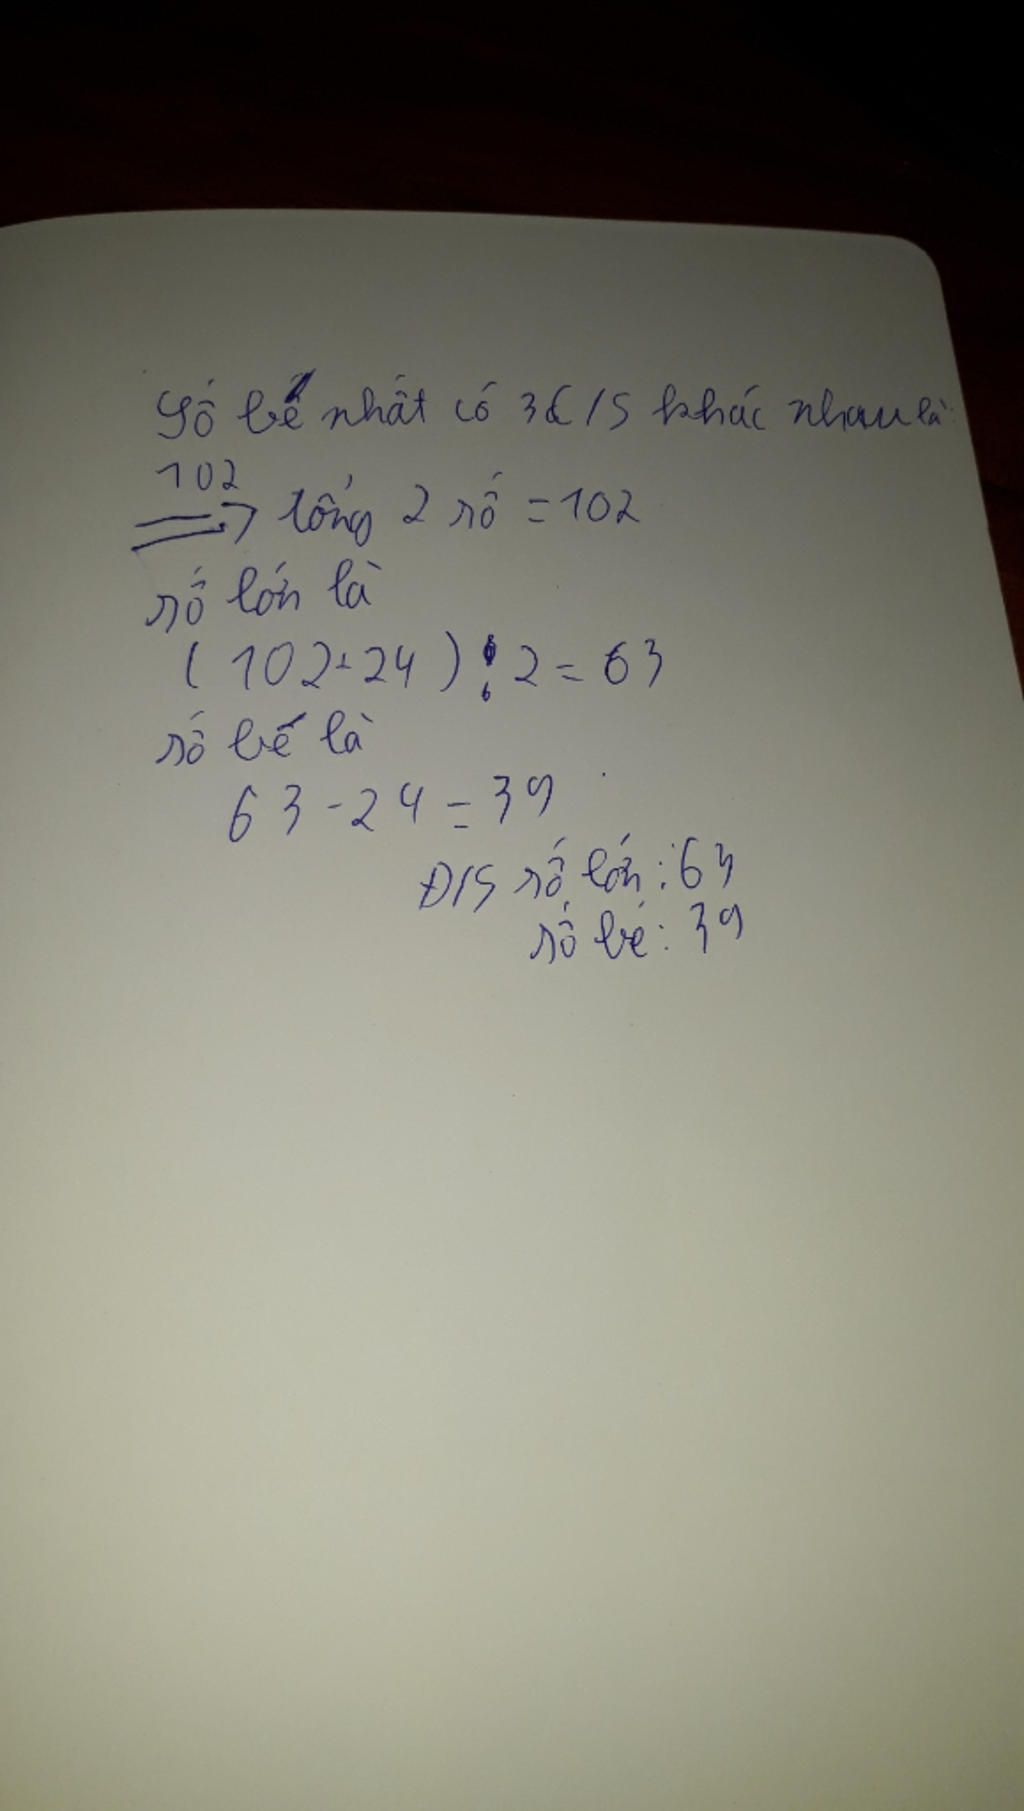 Số bé nhất có 3 c/s khác nhau là:
102
=> tổng 2 số = 102
số lớn là
(102+24) : 2 = 63
số bé là
63 - 24 = 39
Đ/S số lớn : 63
số bé : 39